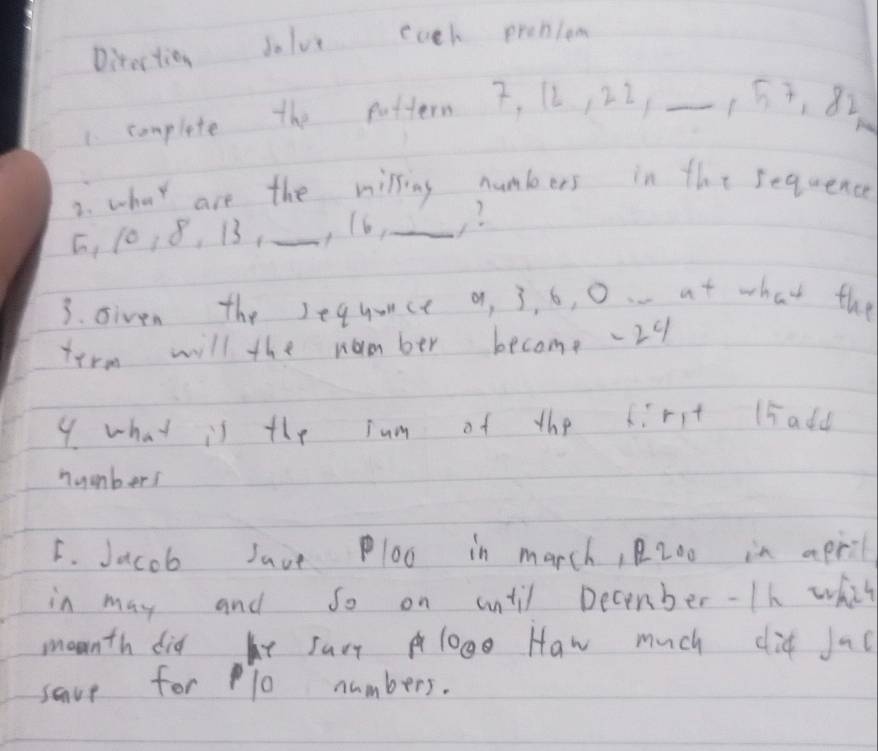 Direction solve each problem
1. complete the pattern 7, 12, 22, __, 57, 82,__
2. what are the missing numbers in the sequence
5, 10, 8, 13, __, 16, __, ?
3. Given the sequence 9, 3, 6, 0 ... at what the
term will the number become -24
4 what is the sum of the first 15 add
numbers
5. Jacob save ₱100 in march, ₱200 in april
in may and so on until December - In which
moanth did he save ₱ 1000 Haw much did Jac
save for ₱10 numbers.